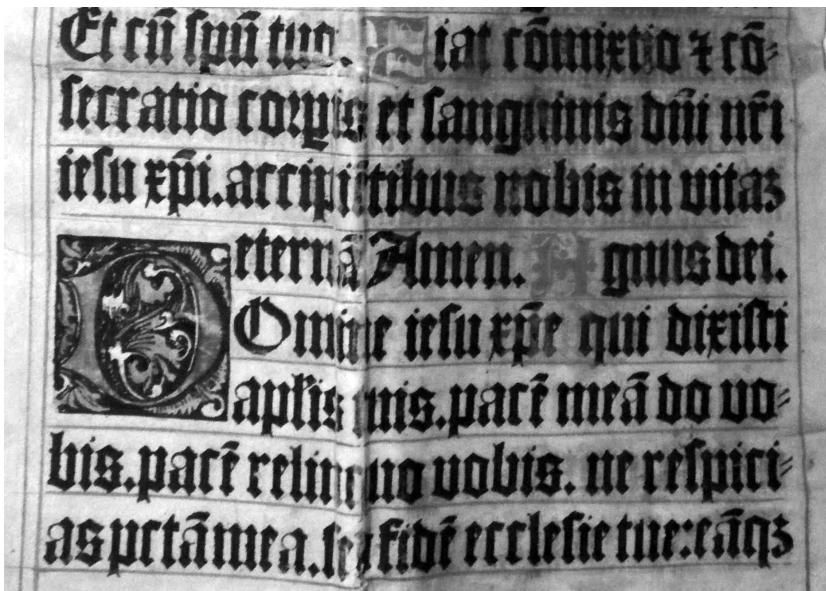 Et cū spū tuo. Fiat cōmixtio ⁊ cō⸗
secratio corpꝭis et sanguinis dn̄i nr̄i
iesu xp̄i. accipiētibus nobis in vitaꝫ
eternā Amen. Agnus dei.
DOmine iesu xp̄e qui dixisti
apl̄is tuis. pacē meā do vo⸗
bis. pacē relinquo vobis. ne respici⸗
as pctā mea. sed fidē ecclesie tue: eāqꝫ